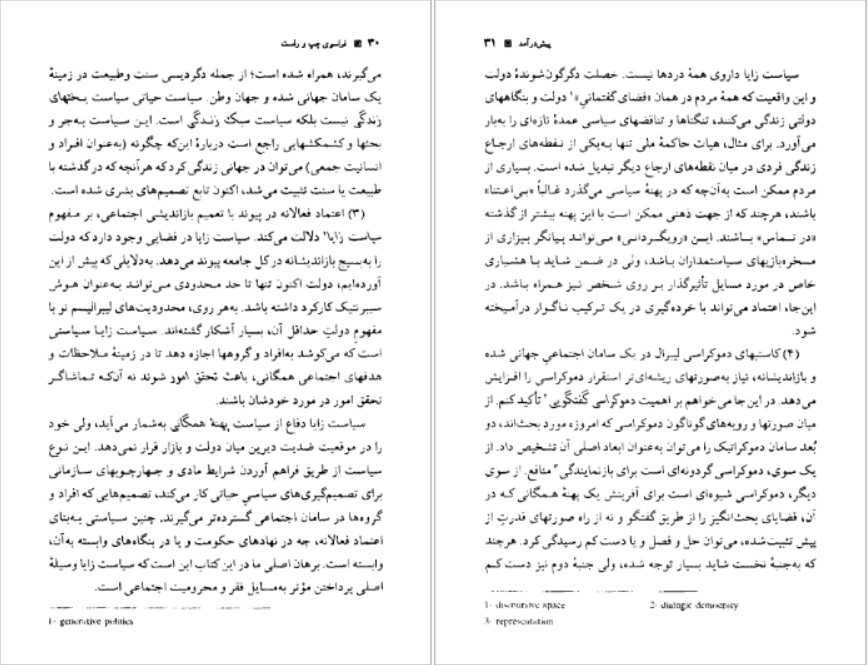 ۳۰ ▪ فراسوی چپ و راست
می‌گیرند، همراه شده است؛ از جمله دگردیسی سنت وطبیعت در زمینهٔ
یک سامان جهانی شده و جهان وطن. سیاست حیاتی سیاست بختهای
زندگی نیست بلکه سیاست سبک زندگی است. این سیاست به‌جر و
بحثها و کشمکشهایی راجع است دربارهٔ این‌که چگونه (به‌عنوان افراد و
انسانیت جمعی) می‌توان در جهانی زندگی کرد که هرآنچه که در گذشته با
طبیعت یا سنت تثبیت می‌شد، اکنون تابع تصمیم‌های بشری شده است.
(۳) اعتماد فعالانه در پیوند با تعمیم بازاندیشی اجتماعی، بر مفهوم
سیاست زایا¹ دلالت می‌کند. سیاست زایا در فضایی وجود دارد که دولت
را به‌بسیج بازاندیشانه در کل جامعه پیوند می‌دهد. به‌دلایلی که پیش از این
آورده‌ایم، دولت اکنون تنها تا حد محدودی می‌تواند به‌عنوان هوش
سیبرنتیک کارکرد داشته باشد. به‌هر روی، محدودیت‌های لیبرالیسم نو با
مفهوم دولتِ حداقل آن، بسیار آشکار گشته‌اند. سیاست زایا سیاستی
است که می‌کوشد به‌افراد و گروهها اجازه دهد تا در زمینهٔ ملاحظات و
هدفهای اجتماعی همگانی، باعث تحقق امور شوند نه آن‌که تماشاگر
تحقق امور در مورد خودشان باشند.
سیاست زایا دفاع از سیاست پهنهٔ همگانی به‌شمار می‌آید، ولی خود
را در موقعیت ضدیت دیرین میان دولت و بازار قرار نمی‌دهد. این نوع
سیاست از طریق فراهم آوردن شرایط مادی و چهارچوبهای سازمانی
برای تصمیم‌گیری‌های سیاسیِ حیاتی کار می‌کند، تصمیم‌هایی که افراد و
گروه‌ها در سامان اجتماعی گسترده‌تر می‌گیرند. چنین سیاستی به‌بنای
اعتماد فعالانه، چه در نهادهای حکومت و یا در بنگاه‌های وابسته به‌آن،
وابسته است. برهان اصلی ما در این کتاب این است که سیاست زایا وسیلهٔ
اصلی پرداختن مؤثر به‌مسایل فقر و محرومیت اجتماعی است.
1- generative politics
پیش‌درآمد ▪ ۳۱
سیاست زایا داروی همهٔ دردها نیست. خصلت دگرگون‌شوندهٔ دولت
و این واقعیت که همهٔ مردم در همان «فضای گفتمانیِ»¹ دولت و بنگاههای
دولتی زندگی می‌کنند، تنگناها و تناقضهای سیاسی عمدهٔ تازه‌ای را به‌بار
می‌آورد. برای مثال، هیات حاکمهٔ ملی تنها به‌یکی از نقطه‌های ارجاع
زندگی فردی در میان نقطه‌های ارجاع دیگر تبدیل شده است. بسیاری از
مردم ممکن است به‌آن‌چه که در پهنهٔ سیاسی می‌گذرد غالباً «بی‌اعتنا»
باشند، هرچند که از جهت ذهنی ممکن است با این پهنه بیشتر از گذشته
«در تماس» باشند. این «رویگردانی» می‌تواند بیانگر بیزاری از
مسخره‌بازیهای سیاستمداران باشد، ولی در ضمن شاید با هشیاری
خاص در مورد مسایل تأثیرگذار بر روی شخص نیز همراه باشد. در
این‌جا، اعتماد می‌تواند با خرده‌گیری در یک ترکیب ناگوار درآمیخته
شود.
(۴) کاستیهای دموکراسی لیبرال در یک سامان اجتماعی جهانی شده
و بازاندیشانه، نیاز به‌صورتهای ریشه‌ای‌تر استقرار دموکراسی را افزایش
می‌دهد. در این‌جا می‌خواهم بر اهمیت دموکراسی گفتگویی² تأکید کنم. از
میان صورتها و رویه‌های گوناگون دموکراسی که امروزه مورد بحث‌اند، دو
بُعد سامان دموکراتیک را می‌توان به‌عنوان ابعاد اصلی آن تشخیص داد. از
یک سوی، دموکراسی گردونه‌ای است برای بازنمایندگی³ منافع. از سوی
دیگر، دموکراسی شیوه‌ای است برای آفرینش یک پهنهٔ همگانی که در
آن، قضایای بحث‌انگیز را از طریق گفتگو و نه از راه صورتهای قدرتِ از
پیش تثبیت‌شده، می‌توان حل و فصل و یا دست کم رسیدگی کرد. هرچند
که به‌جنبهٔ نخست شاید بسیار توجه شده، ولی جنبهٔ دوم نیز دست کم
1- discursive space
2- dialogic democracy
3- representation